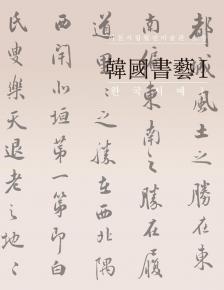 韓國書藝 I
한국서예
都城風土之勝在東
南偏東南之勝在履
道里々之勝在西北隅
西閈北垣第一第即白
氏叟樂天退老之地々